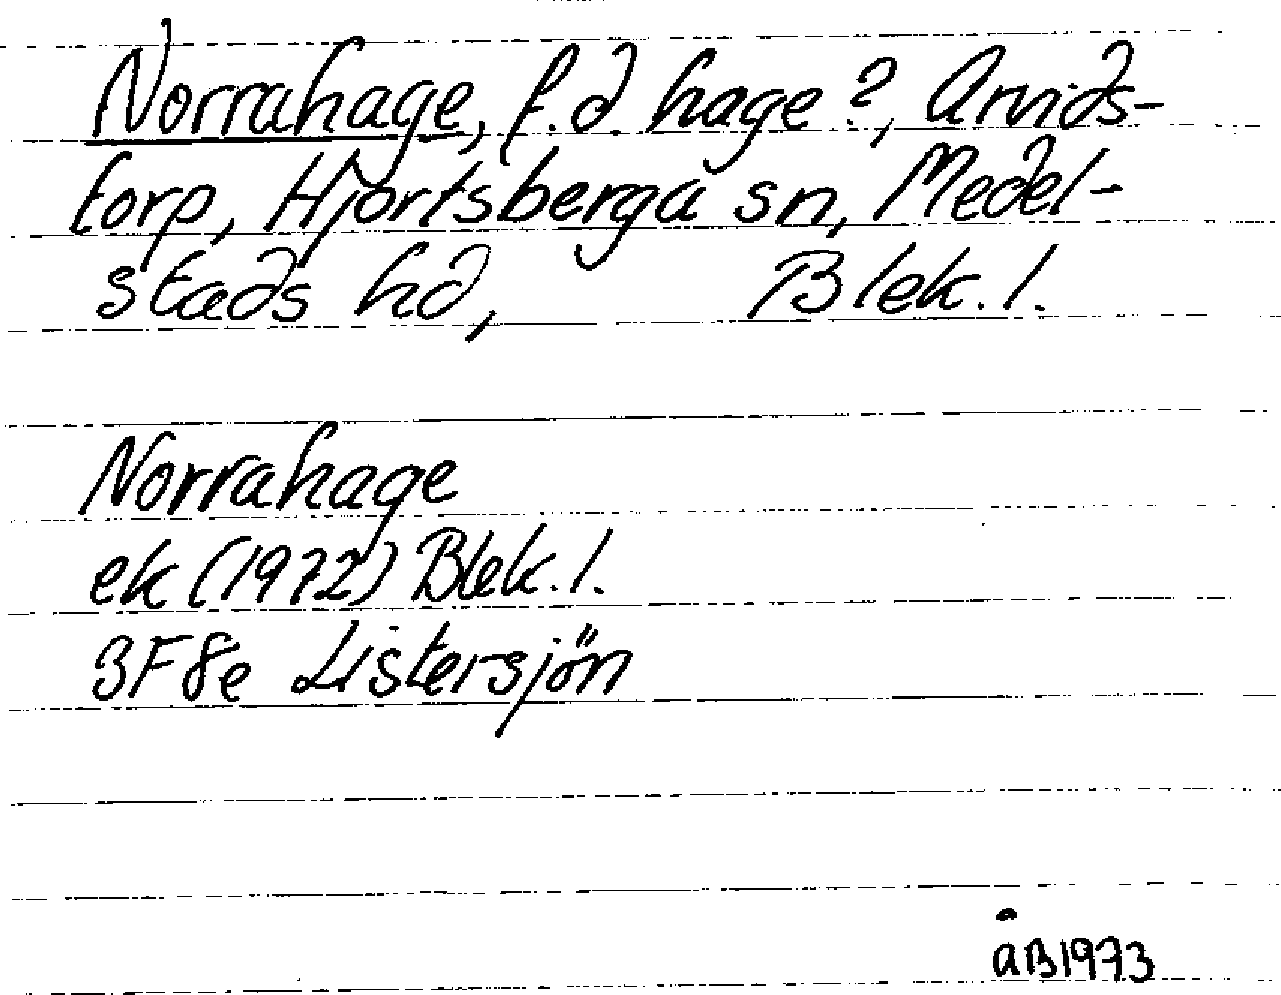 Norrahage, f.d. hage?, Arvids-
torp, Hjortsberga sn, Medel-
stads hd, Blek. l.
Norrahage
ek (1972) Blek. l.
3F8e Listersjön
åB1973